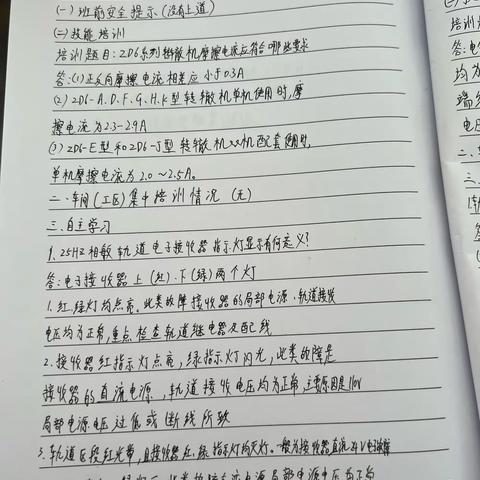 (一) 班前安全提示 (没有上道)
(二) 技能培训
培训题目: ZD6系列转辙机摩擦电流应符合哪些要求
答: (1) 正反向摩擦电流相差应小于0.3A
(2) ZD6-A、D、F、G、H、K型转辙机单机使用时, 摩
擦电流为2.3-2.9A
(3) ZD6-E型和ZD6-J型转辙机双机配套使用时,
单机摩擦电流为2.0~2.5A。
二、车间(工区)集中培训情况 (无)
三、自主学习
1. 25HZ相敏轨道电子接收器指示灯显示有何意义?
答: 电子接收器上(红)、下(绿)两个灯
1. 红、绿灯均点亮, 此类故障接收器的局部电源、轨道接收
电压均为正常, 重点检查轨道继电器及配线
2. 接收器红指示灯点亮, 绿指示灯闪光, 此类故障是
接收器的直流电源, 轨道接收电压均为正常, 主要原因是110V
局部电源电压过低或断线所致
3. 轨道区段红光带, 且接收器红、绿指示灯均灭灯。一般为接收器直流24V电源
(三) 技
培训
答: 电
均为
端
电压
二、
三、